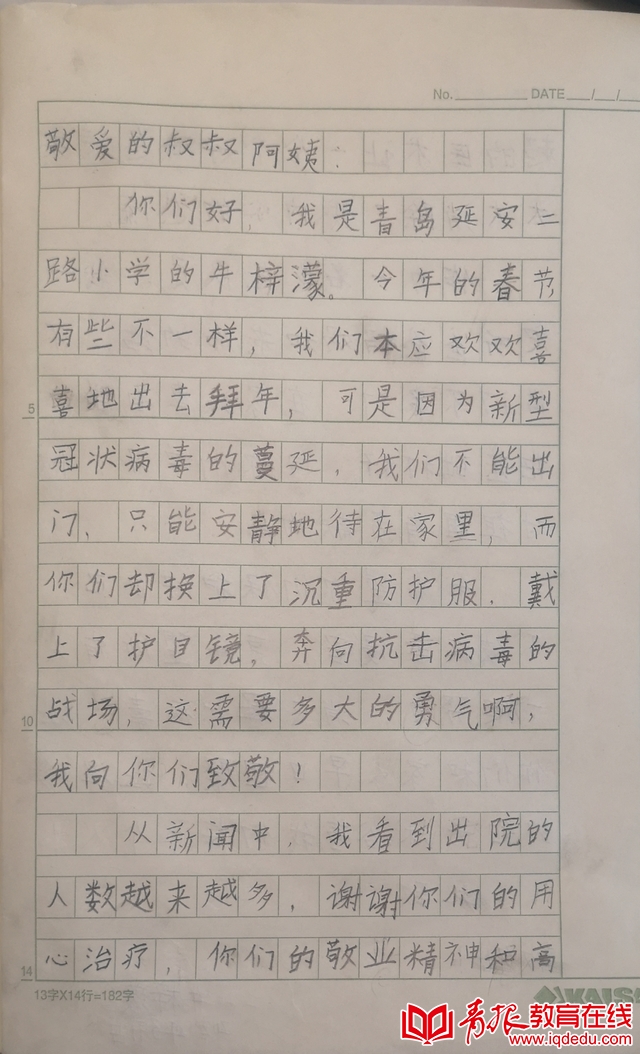 No. DATE / /
敬爱的叔叔阿姨：
你们好，我是青岛延安二
路小学的牛梓濛。今年的春节
有些不一样，我们本应欢欢喜
喜地出去拜年，可是因为新型
5
冠状病毒的蔓延，我们不能出
门，只能安静地待在家里，而
你们却换上了沉重防护服，戴
上了护目镜，奔向抗击病毒的
战场，这需要多大的勇气啊，
10
我向你们致敬！
从新闻中，我看到出院的
人数越来越多，谢谢你们的用
心治疗，你们的敬业精神和高
14
13字X14行=182字
青报教育在线
www.iqdedu.com